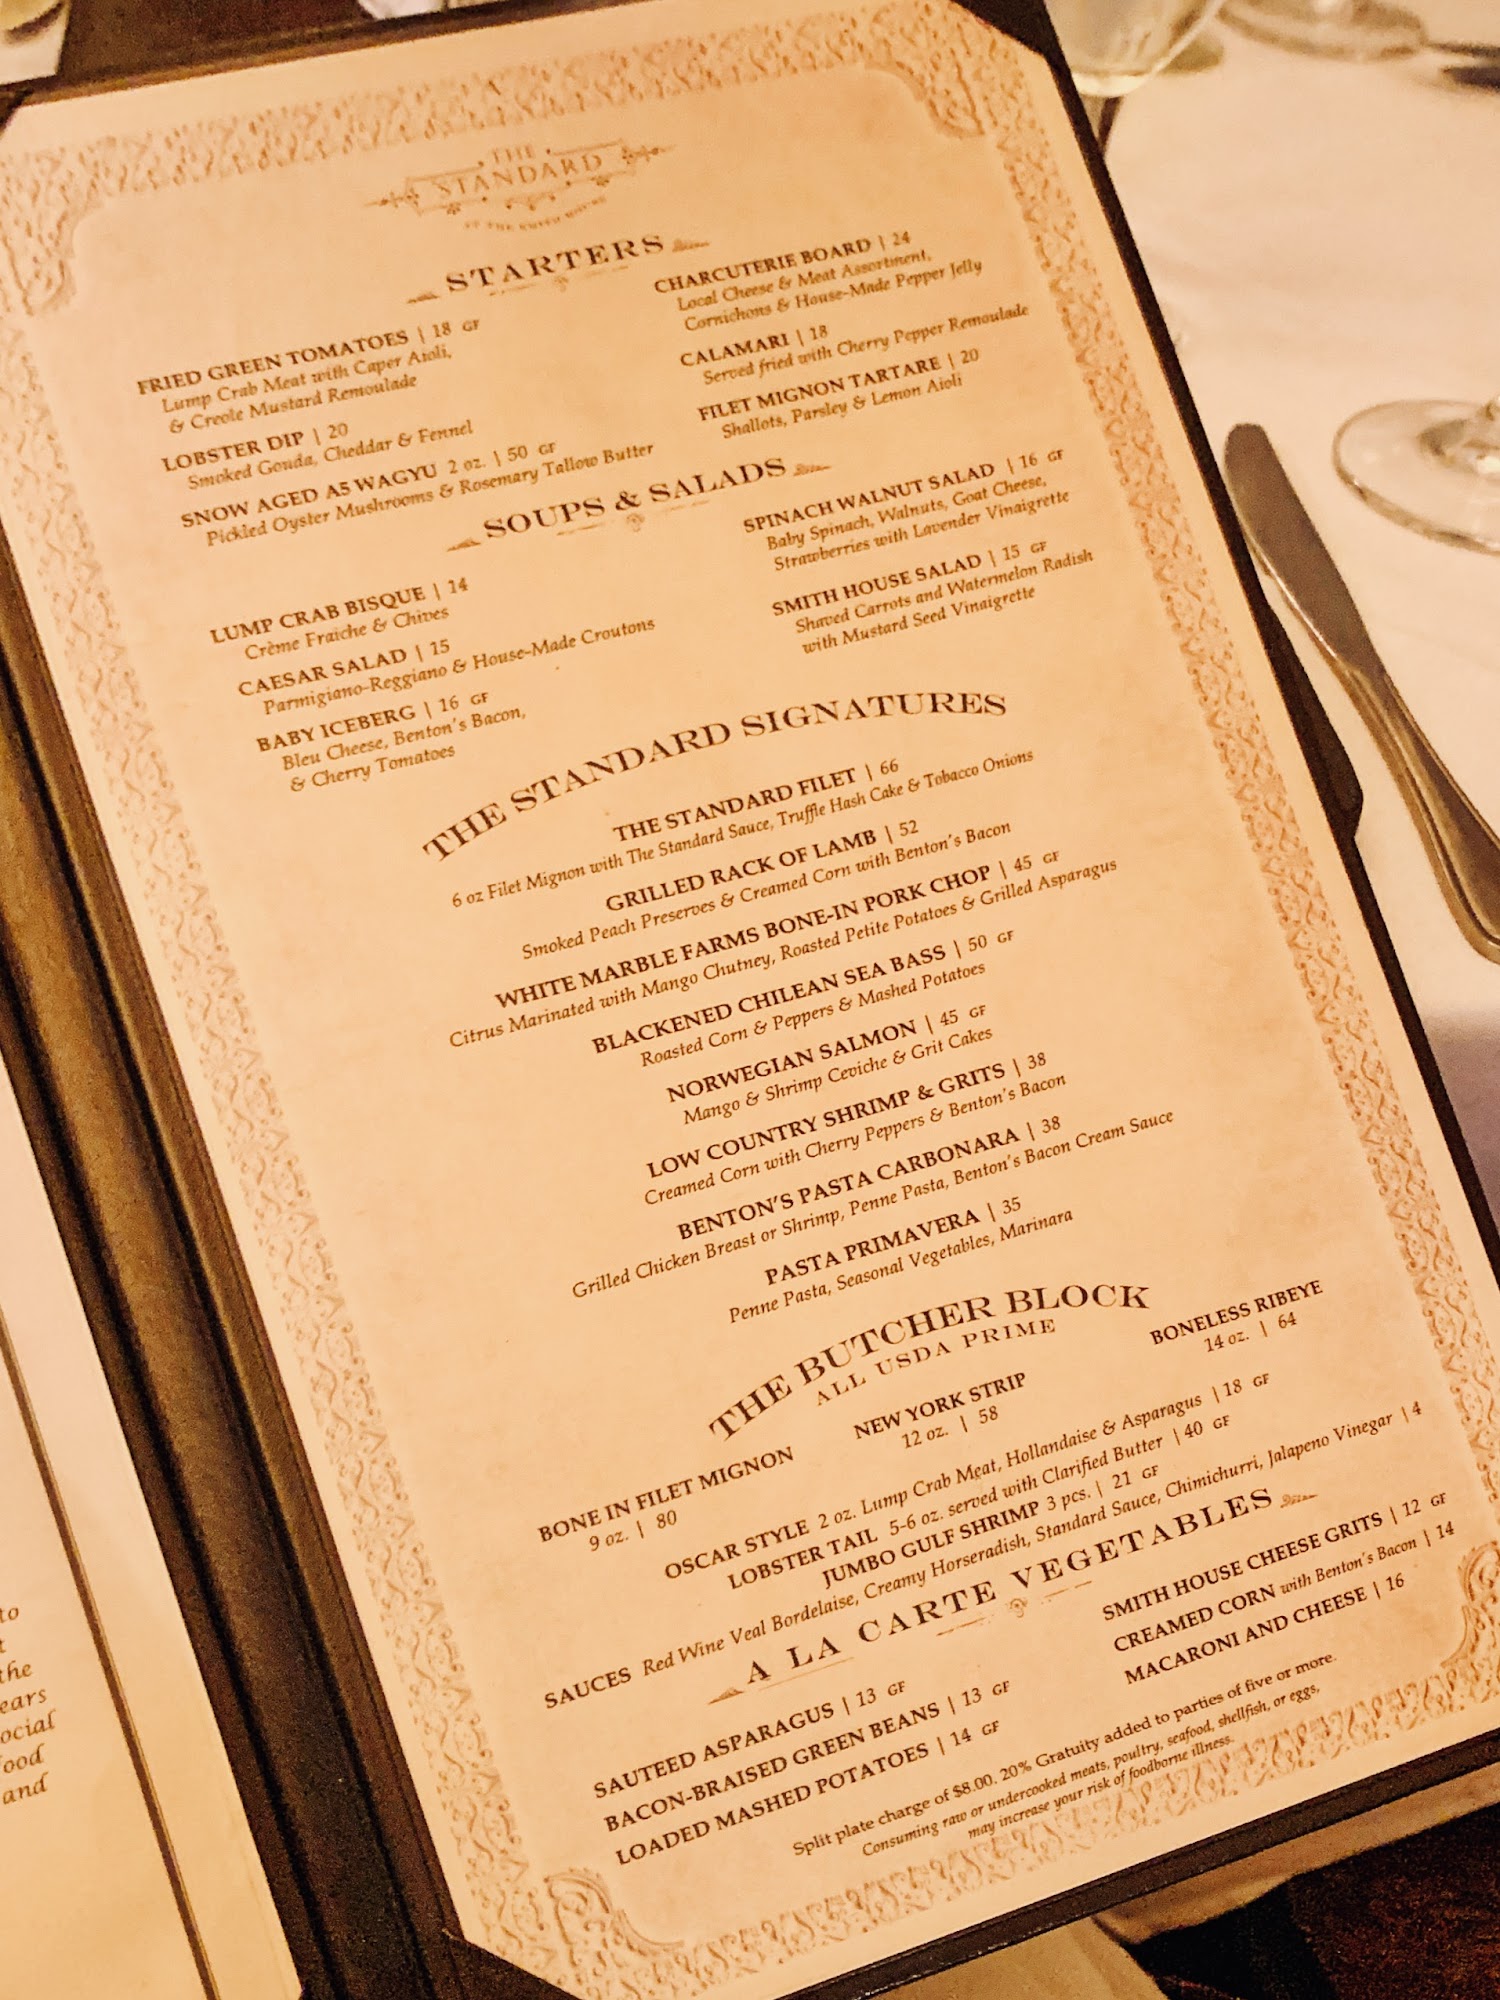 THE
STANDARD
AT THE SMITH HOUSE
STARTERS
FRIED GREEN TOMATOES | 18 GF
Lump Crab Meat with Caper Aioli,
& Creole Mustard Remoulade
LOBSTER DIP | 20
Smoked Gouda, Cheddar & Fennel
SNOW AGED A5 WAGYU 2 oz. | 50 GF
Pickled Oyster Mushrooms & Rosemary Tallow Butter
CHARCUTERIE BOARD | 24
Local Cheese & Meat Assortment,
Cornichons & House-Made Pepper Jelly
CALAMARI | 18
Served fried with Cherry Pepper Remoulade
FILET MIGNON TARTARE | 20
Shallots, Parsley & Lemon Aioli
SOUPS & SALADS
LUMP CRAB BISQUE | 14
Crème Fraiche & Chives
CAESAR SALAD | 15
Parmigiano-Reggiano & House-Made Croutons
BABY ICEBERG | 16 GF
Bleu Cheese, Benton's Bacon,
& Cherry Tomatoes
SPINACH WALNUT SALAD | 16 GF
Baby Spinach, Walnuts, Goat Cheese,
Strawberries with Lavender Vinaigrette
SMITH HOUSE SALAD | 15 GF
Shaved Carrots and Watermelon Radish
with Mustard Seed Vinaigrette
THE STANDARD SIGNATURES
THE STANDARD FILET | 66
6 oz Filet Mignon with The Standard Sauce, Truffle Hash Cake & Tobacco Onions
GRILLED RACK OF LAMB | 52
Smoked Peach Preserves & Creamed Corn with Benton's Bacon
WHITE MARBLE FARMS BONE-IN PORK CHOP | 45 GF
Citrus Marinated with Mango Chutney, Roasted Petite Potatoes & Grilled Asparagus
BLACKENED CHILEAN SEA BASS | 50 GF
Roasted Corn & Peppers & Mashed Potatoes
NORWEGIAN SALMON | 45 GF
Mango & Shrimp Ceviche & Grit Cakes
LOW COUNTRY SHRIMP & GRITS | 38
Creamed Corn with Cherry Peppers & Benton's Bacon
BENTON'S PASTA CARBONARA | 38
Grilled Chicken Breast or Shrimp, Penne Pasta, Benton's Bacon Cream Sauce
PASTA PRIMAVERA | 35
Penne Pasta, Seasonal Vegetables, Marinara
THE BUTCHER BLOCK
ALL USDA PRIME
BONE IN FILET MIGNON
9 oz. | 80
NEW YORK STRIP
12 oz. | 58
BONELESS RIBEYE
14 oz. | 64
OSCAR STYLE 2 oz. Lump Crab Meat, Hollandaise & Asparagus | 18 GF
LOBSTER TAIL 5-6 oz. served with Clarified Butter | 40 GF
JUMBO GULF SHRIMP 3 pcs. | 21 GF
SAUCES Red Wine Veal Bordelaise, Creamy Horseradish, Standard Sauce, Chimichurri, Jalapeno Vinegar | 4
A LA CARTE VEGETABLES
SAUTEED ASPARAGUS | 13 GF
BACON-BRAISED GREEN BEANS | 13 GF
LOADED MASHED POTATOES | 14 GF
SMITH HOUSE CHEESE GRITS | 12 GF
CREAMED CORN with Benton's Bacon | 14
MACARONI AND CHEESE | 16
Split plate charge of $8.00. 20% Gratuity added to parties of five or more.
Consuming raw or undercooked meats, poultry, seafood, shellfish, or eggs,
may increase your risk of foodborne illness.
to
t
the
ears
ocial
food
and